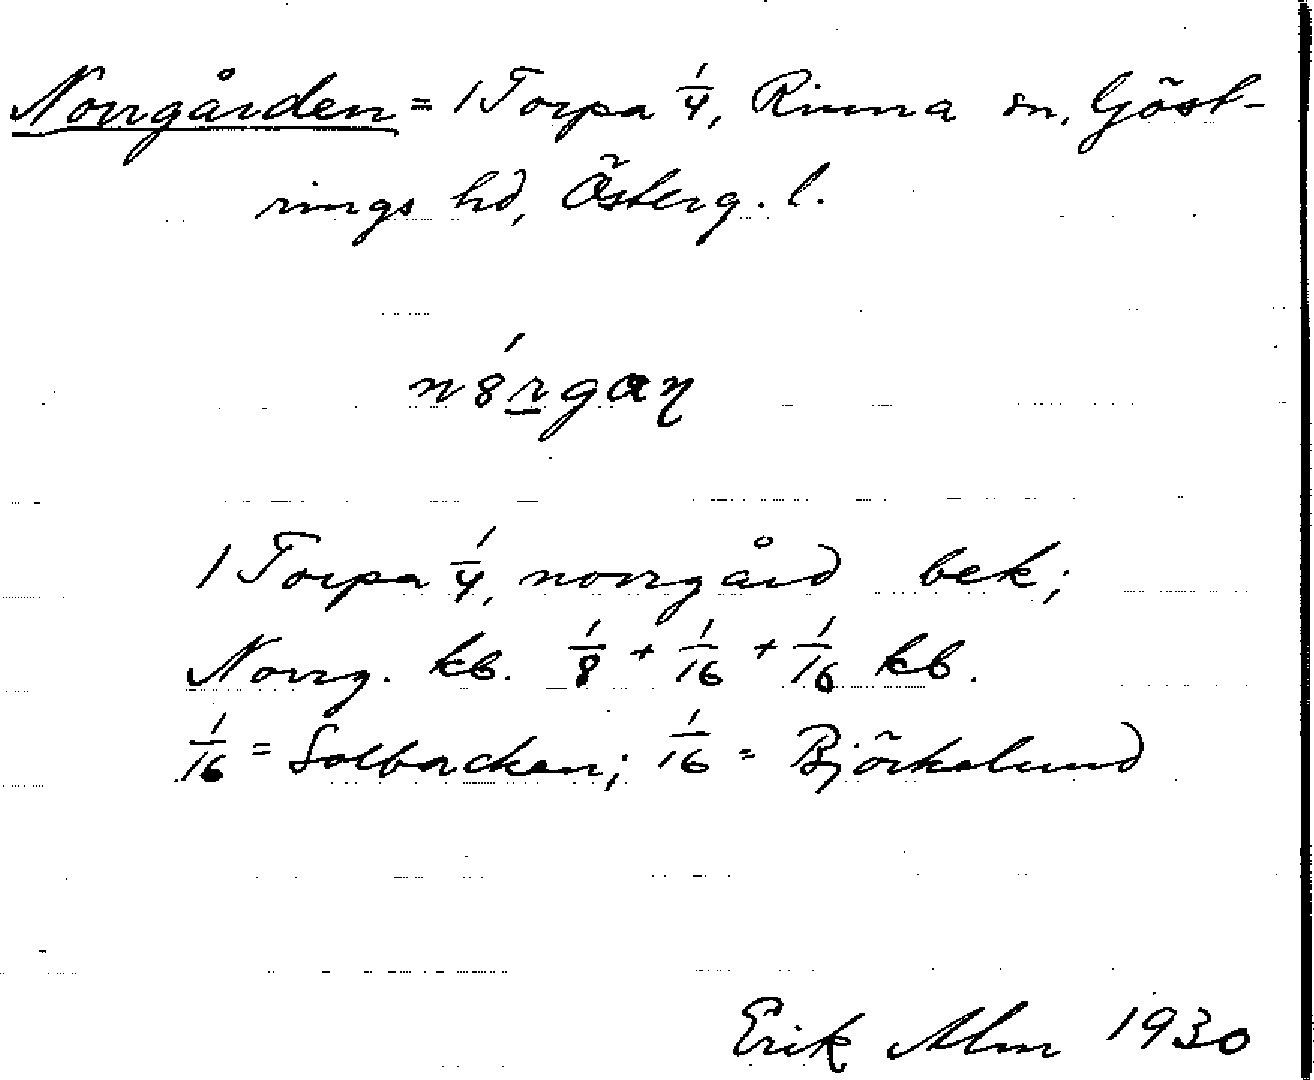 Norrgården = 1 Torpa 1/4, Rinna sn, Göst-
rings hd, Österg. l.
1 Torpa 1/4, norrgård bek;
Norrg. kb. 1/8 + 1/16 + 1/16 kb.
1/16 = Solbacken; 1/16 = Björkelund
Erik Alm 1930